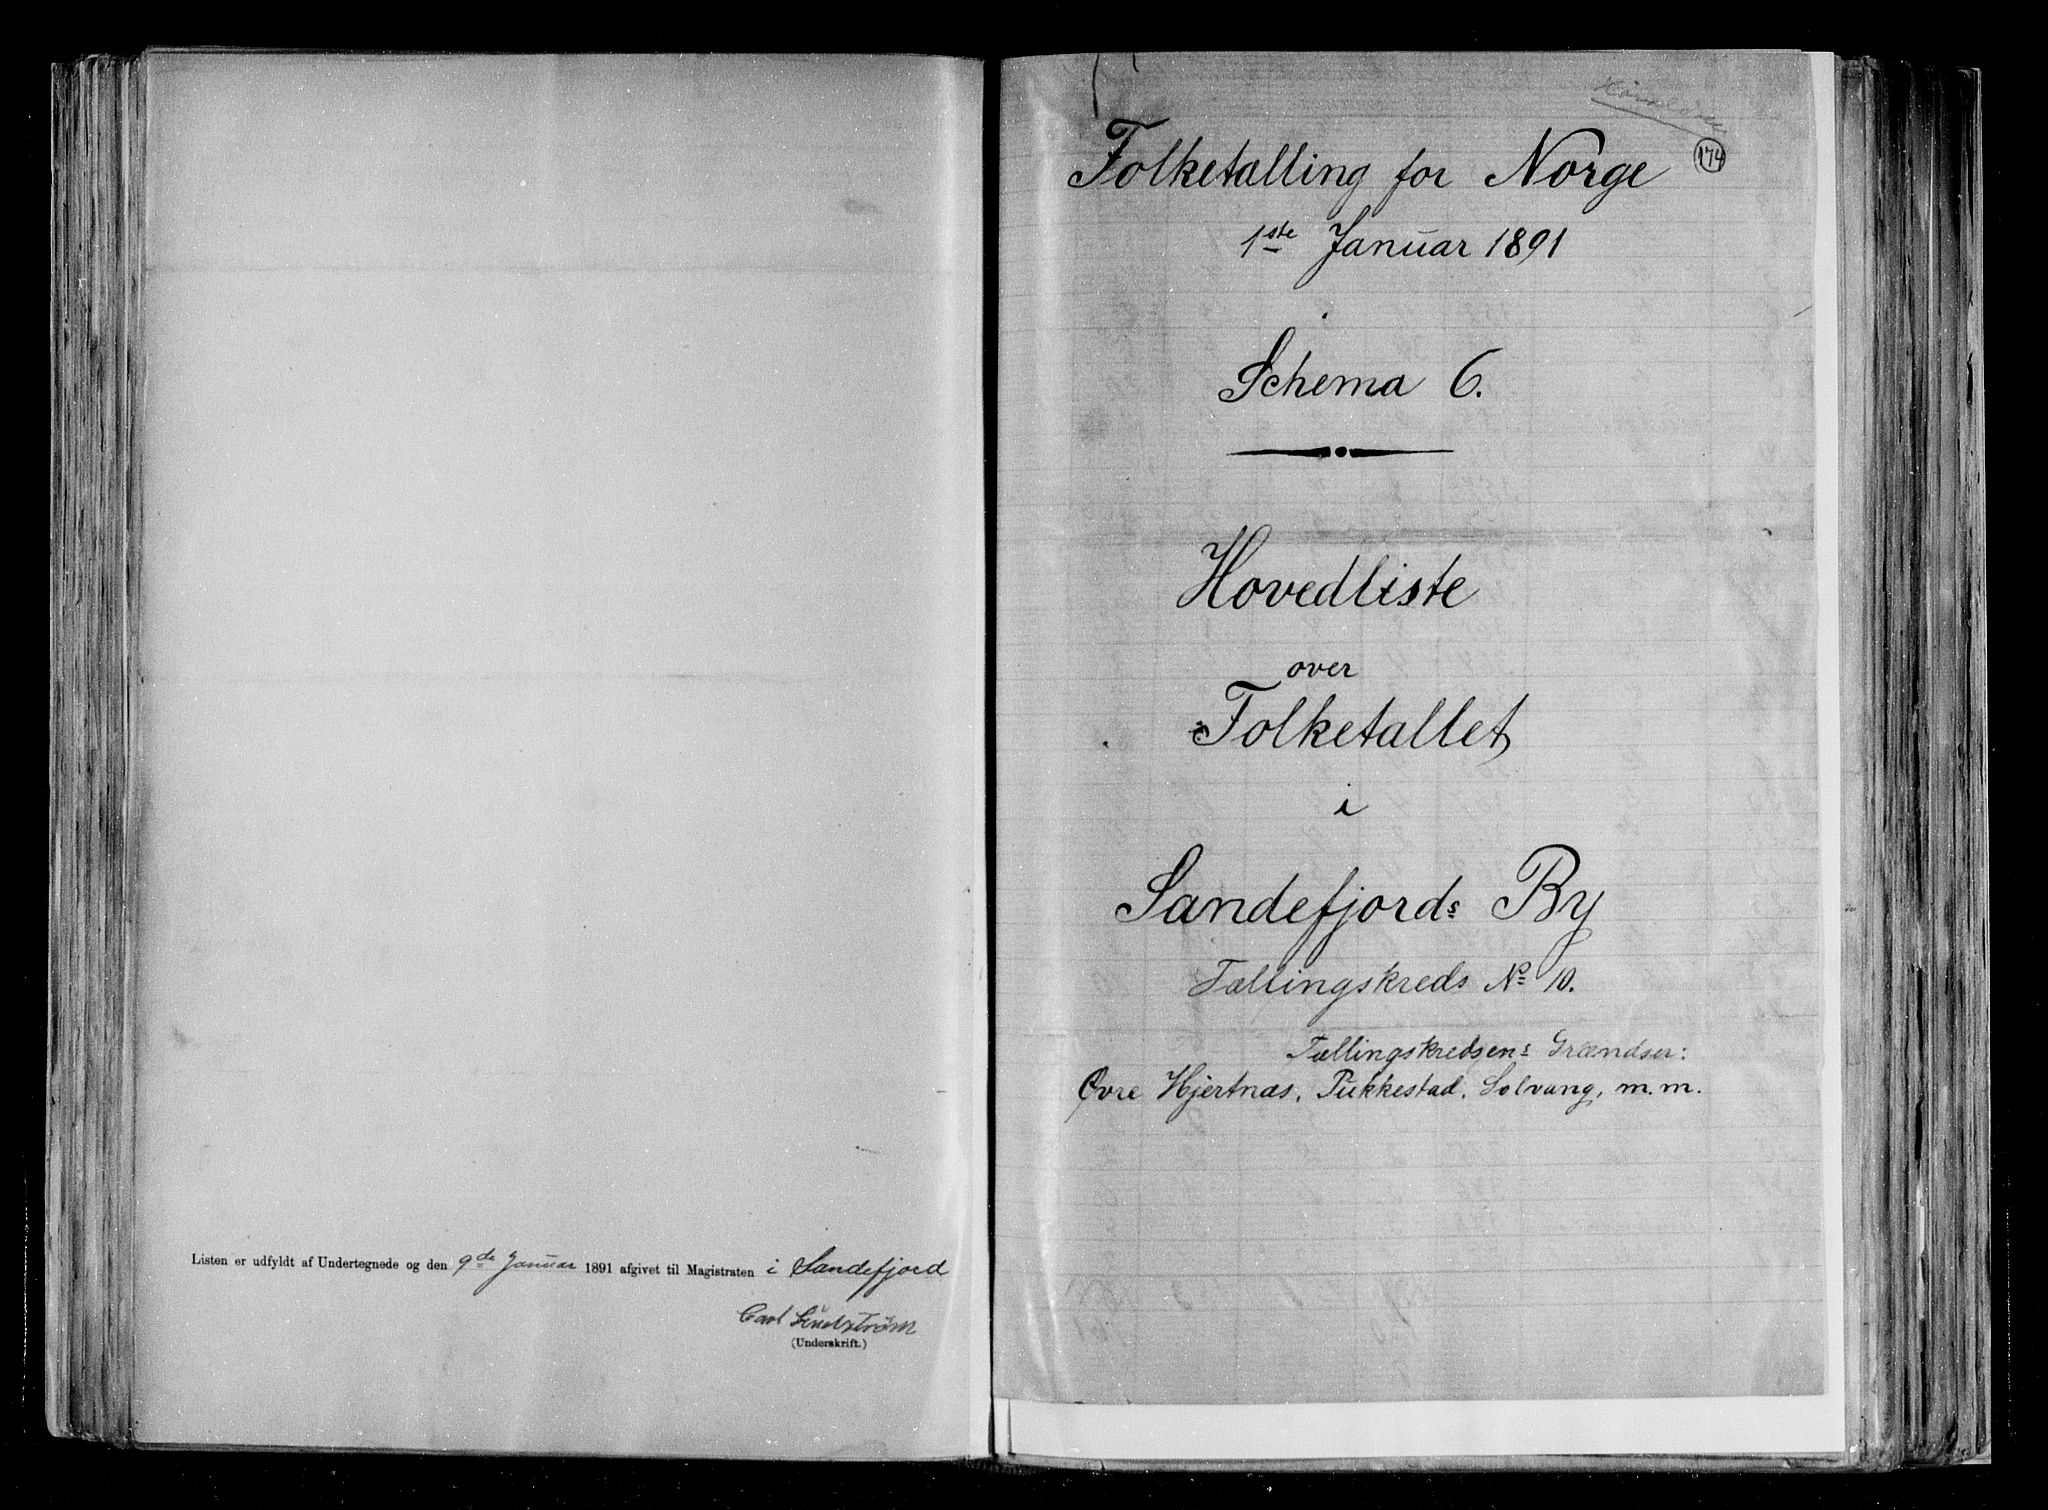 Listen er udfyldt af Undertegnede og den 9de Januar 1891 afgivet til Magistraten i Sandefjord
Carl Lindstrøm
(Underskrift.)
174
Folketælling for Norge
1ste Januar 1891
Schema 6.
Hovedliste
over
Folketallet
i
Sandefjords By
Tællingskreds No 10.
Tællingskredsens Grændser:
Øvre Hjertnæs, Pukkestad, Solvang, m.m.